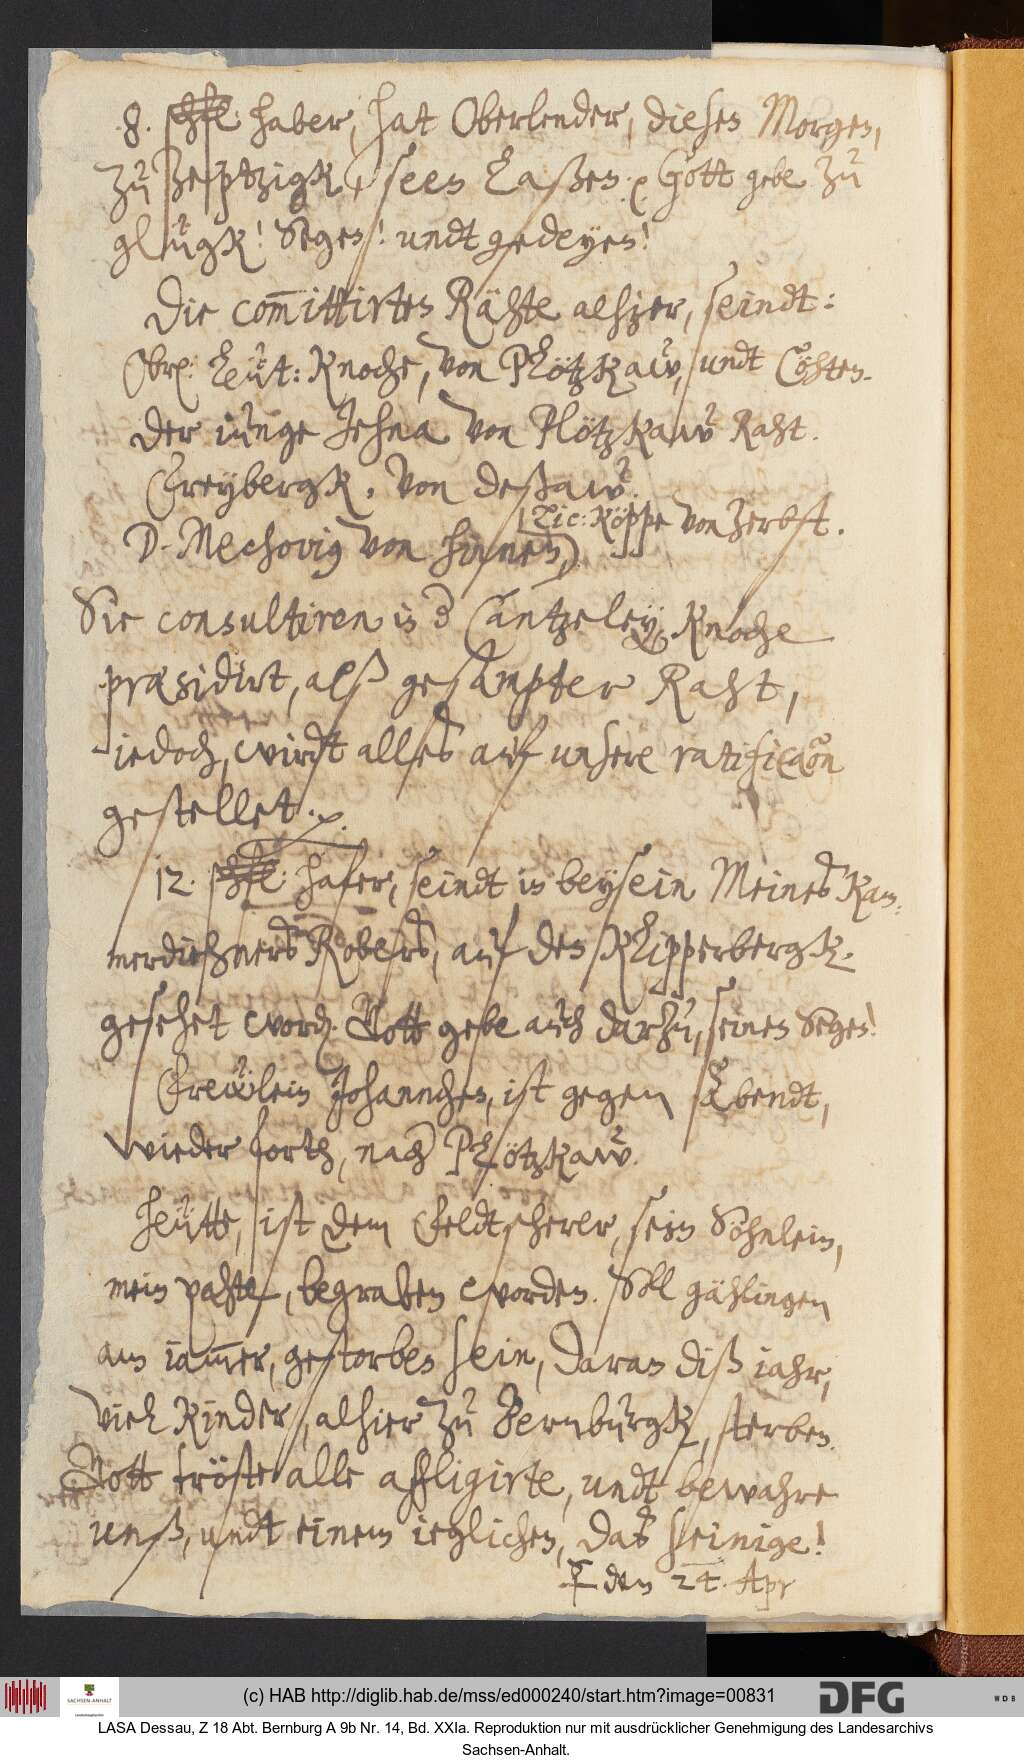 8. schfl. haber, hat Oberlender, diesen Morgen,
zu Zeptzigk, seen laßen. Gott gebe zu
glügk! Segen! undt gedeyen!
Die com̄ittirten Rähte alhier, seindt:
Obrl: Leüt: Knoche, von Plötzkaw, undt Cöhten.
der iunge Jehna von Plötzkaw Raht.
Freybergk, von deßaw.
Lic: Köppe von Zerbst.
D. Mechovig von hinnen,
Sie consultiren in d Cantzeley, Knoche
præsidirt, alß gesampter Raht,
iedoch, wirdt alles auf unsere ratificaõn
gestellet.
12. schfl. hafer, seindt in beysein Meines Kam¬
merdiehners Robers, auf den Klipperbergk.
gesehet word. Gott gebe auch darzu, seinen Segen!
Frewlein Johannchen, ist gegen Abendt,
wieder forth, nach Plötzkaw.
Heütte, ist dem Feldtscherer, sein Söhnlein,
mein pahte, begraben worden. Soll gählingen
am iam̄er, gestorben sein, daran diß iahr,
viel Kinder, alhier zu Bernburgk, sterben.
Gott tröste alle affligirte, undt bewahre
unß, undt einem ieglichen, das seinige!
den 24. Apr
(c) HAB http://diglib.hab.de/mss/ed000240/start.htm?image=00831
SACHSEN-ANHALT
DFG
WDB
LASA Dessau, Z 18 Abt. Bernburg A 9b Nr. 14, Bd. XXIa. Reproduktion nur mit ausdrücklicher Genehmigung des Landesarchivs
Sachsen-Anhalt.